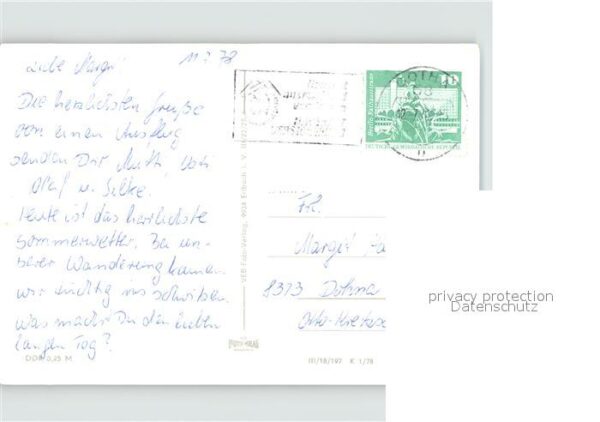 11.7.78
Liebe Margit!
Die herzlichsten Grüße
von einem Ausflug
senden Dir Mutti, Vati
Olaf u. Silke.
Heute ist das herrlichste
Sommerwetter. Bei un-
serer Wanderung kamen
wir tüchtig ins schwitzen.
Was machst Du den lieben
langen Tag?
DDR 0,25 M
VEB Foto-Verlag, 9938 Erlbach i. V.
III/18/197 K 1/78
GOTHA
10
DEUTSCHE DEMOKRATISCHE REPUBLIK
Frl.
Margit
8373 Dohna
privacy protection
Datenschutz